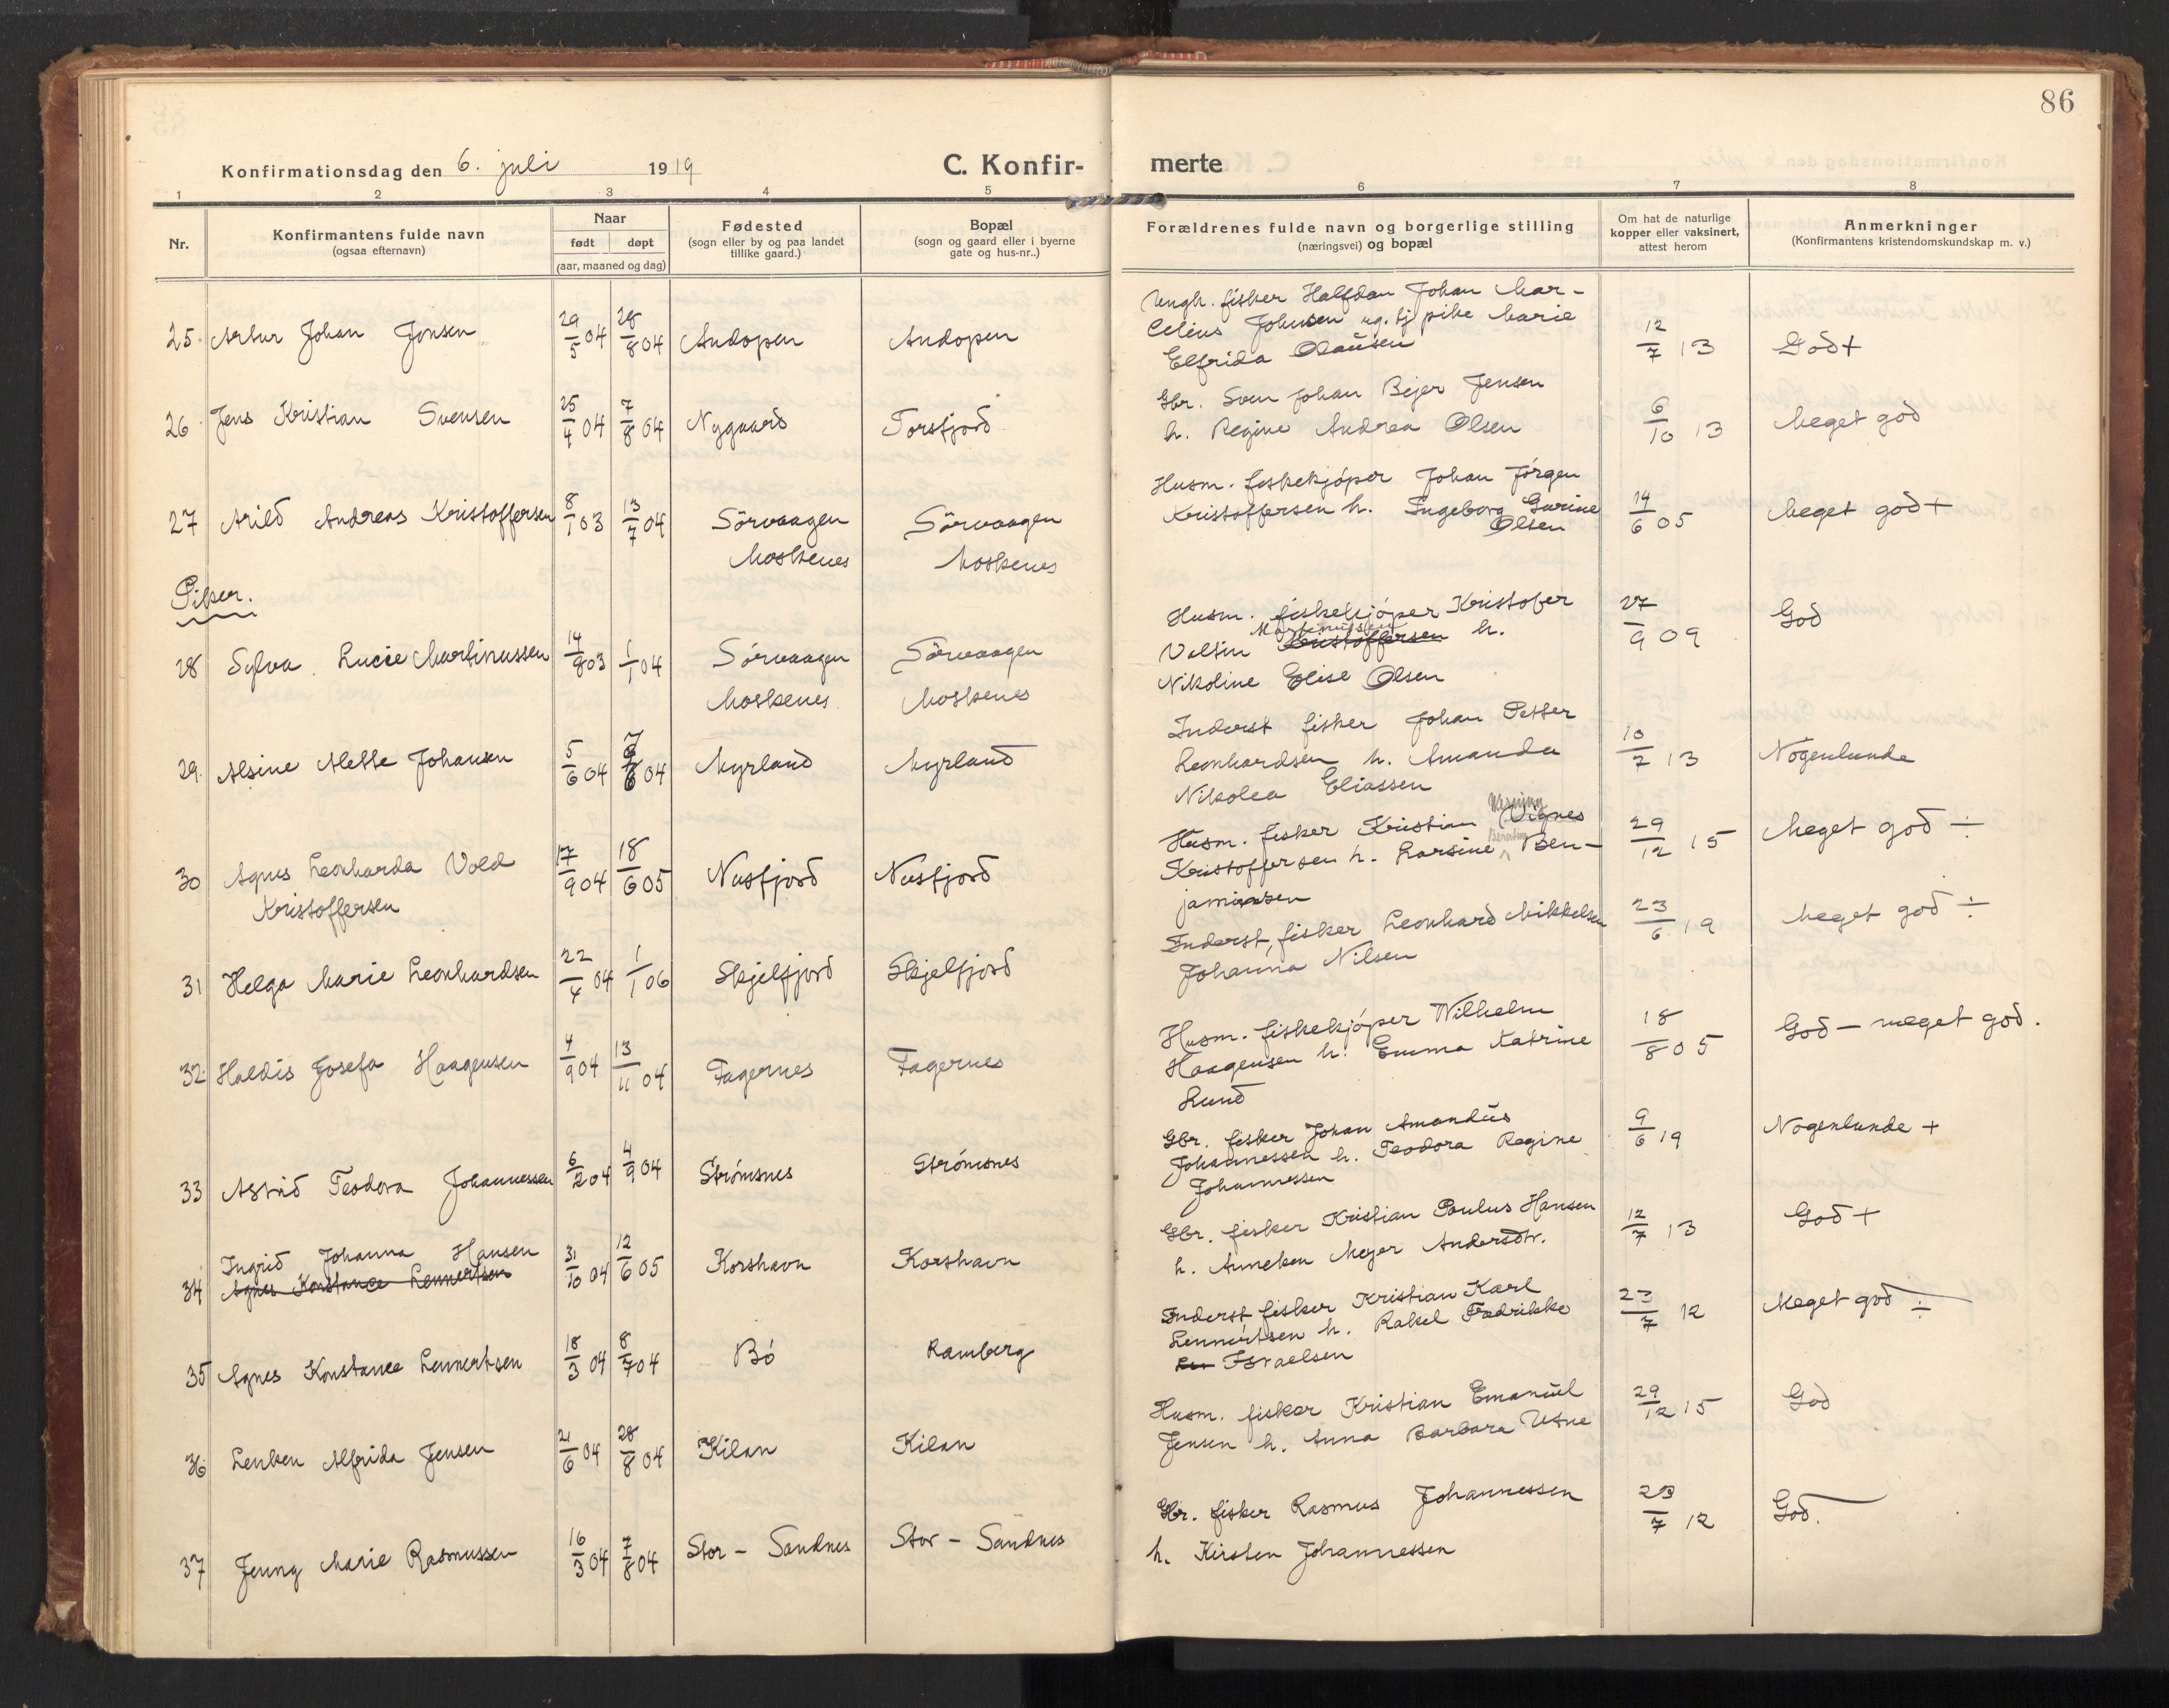 86
Konfirmationsdag den 6. juli 1919
C. Konfir-
merte
1 2 3 4 5 6 7 8
Nr.
Konfirmantens fulde navn
(ogsaa efternavn)
Naar
født døpt
(aar, maaned og dag)
Fødested
(sogn eller by og paa landet
tillike gaard.)
Bopæl
(sogn og gaard eller i byerne
gate og hus-nr..)
Forældrenes fulde navn og borgerlige stilling
(næringsvei) og bopæl
Om hat de naturlige
kopper eller vaksinert,
attest herom
Anmerkninger
(Konfirmantens kristendomskundskap m. v.)
25. Artur Johan Jonsen 29/5 04 28/8 04 Andopen Andopen
Ungk. fisker Halfdan Johan Mar-
celius Johnsen ug. tj pike Marie
Elfrida Olausen
12/7 13 God +
26. Jens Kristian Svensen 25/4 04 7/8 04 Nygaard Torsfjord
Gbr. Sven Johan Bejer Jensen
h. Regine Andrea Olsen
6/10 13 Meget god
27 Arild Andreas Kristoffersen 8/1 03 13/7 04 Sørvaagen Sørvaagen
Moskenes Moskenes
Husm. fiskekjøper Johan Jørgen
Kristoffersen h. Ingeborg Gurine
Olsen
14/6 05 Meget god +
Piker.
28 Sylva Lucie Martinussen 14/8 03 1/1 04 Sørvaagen Sørvaagen
Moskenes Moskenes
Husm. fiskekjøper Kristofer
Martinussen
Valtin Kristoffersen h.
Nikoline Elise Olsen
27/9 09 God
29. Alsine Alette Johansen 5/6 04 7/8 04 Myrland Myrland
Inderst fisker Johan Petter
Leonhardsen h. Amanda
Nikolea Eliassen
10/7 13 Nogenlunde
30 Agnes Leonharda Vold
Kristoffersen
17/9 04 18/6 05 Nusfjord Nusfjord
Husm. fisker Kristian Vignes
Kristoffersen h. Larsine Ben-
jaminsen
29/12 15 Meget god ÷
31 Helga Marie Leonhardsen 22/4 04 1/1 06 Skjelfjord Skjelfjord
Inderst, fisker Leonhard Mikkelsen
Johanna Nilsen
23/6 19 Meget god ÷
32. Haldis Josefa Haagensen 4/9 04 13/11 04 Fagernes Fagernes
Husm. fiskekjøper Wilhelm
Haagensen h. Emma Katrine
Lund
18/8 05 God — meget god.
33 Astrid Teodora Johannessen 6/2 04 4/9 04 Strømsnes Strømsnes
Gbr. fisker Johan Amandus
Johannessen h. Teodora Regine
Johannessen
9/6 19 Nogenlunde +
Ingrid Johanna Hansen
34 Agnes Konstance Lennertsen 31/10 04 12/6 05 Korshavn Korshavn
Gbr. fisker Kristian Paulus Hansen
h. Anneken Mejer Andersdtr.
12/7 13 God +
35 Agnes Konstance Lennertsen 18/3 04 8/7 04 Bø Ramberg
Inderst fisker Kristian Karl
Lennertsen h. Rakel Fredrikke
Israelsen
23/7 12 Meget god ÷
36 Lenken Alfrida Jensen 21/6 04 28/8 04 Kilan Kilan
Husm. fisker Kristian Emanuel
Jensen h. Anna Barbara Utne
29/12 15 God
37 Jenny Marie Rasmussen 16/3 04 7/8 04 Stor - Sandnes Stor - Sandnes
Gbr. fisker Rasmus Johannessen
h. Kirsten Johannessen
23/7 12 God.